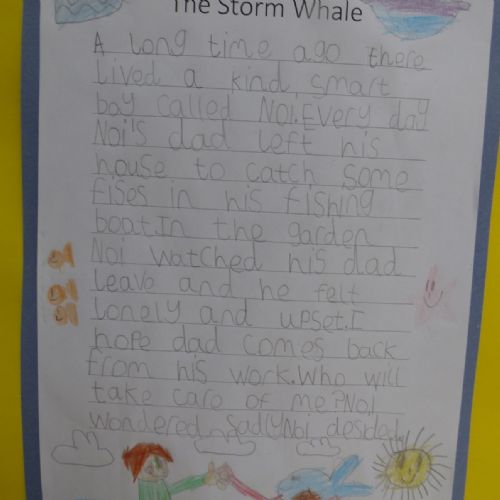 The Storm Whale
A long time ago there
lived a kind, smart
boy called Noi. Every day
Noi's dad left his
house to catch some
fises in his fishing
boat. In the garden
Noi watched his dad
leave and he felt
lonely and upset. I
hope dad comes back
from his work. Who will
take care of me? Noi
wondered sadly. Noi desided